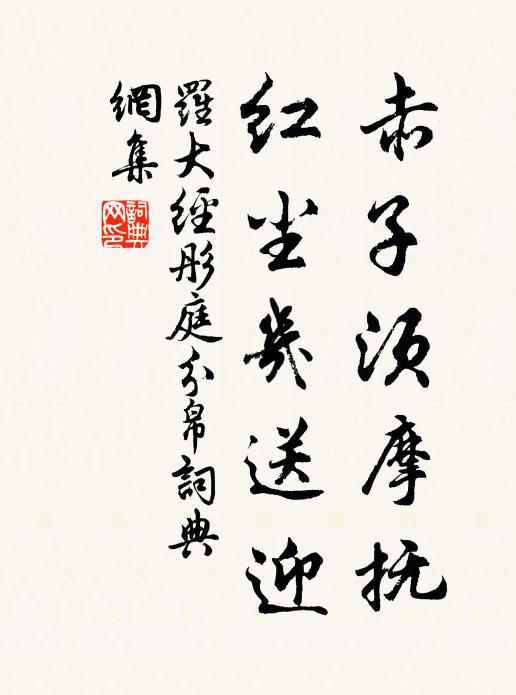 赤子须摩抚
红尘几送迎
羅大經彤庭分帛詞典
網集
詞典網印